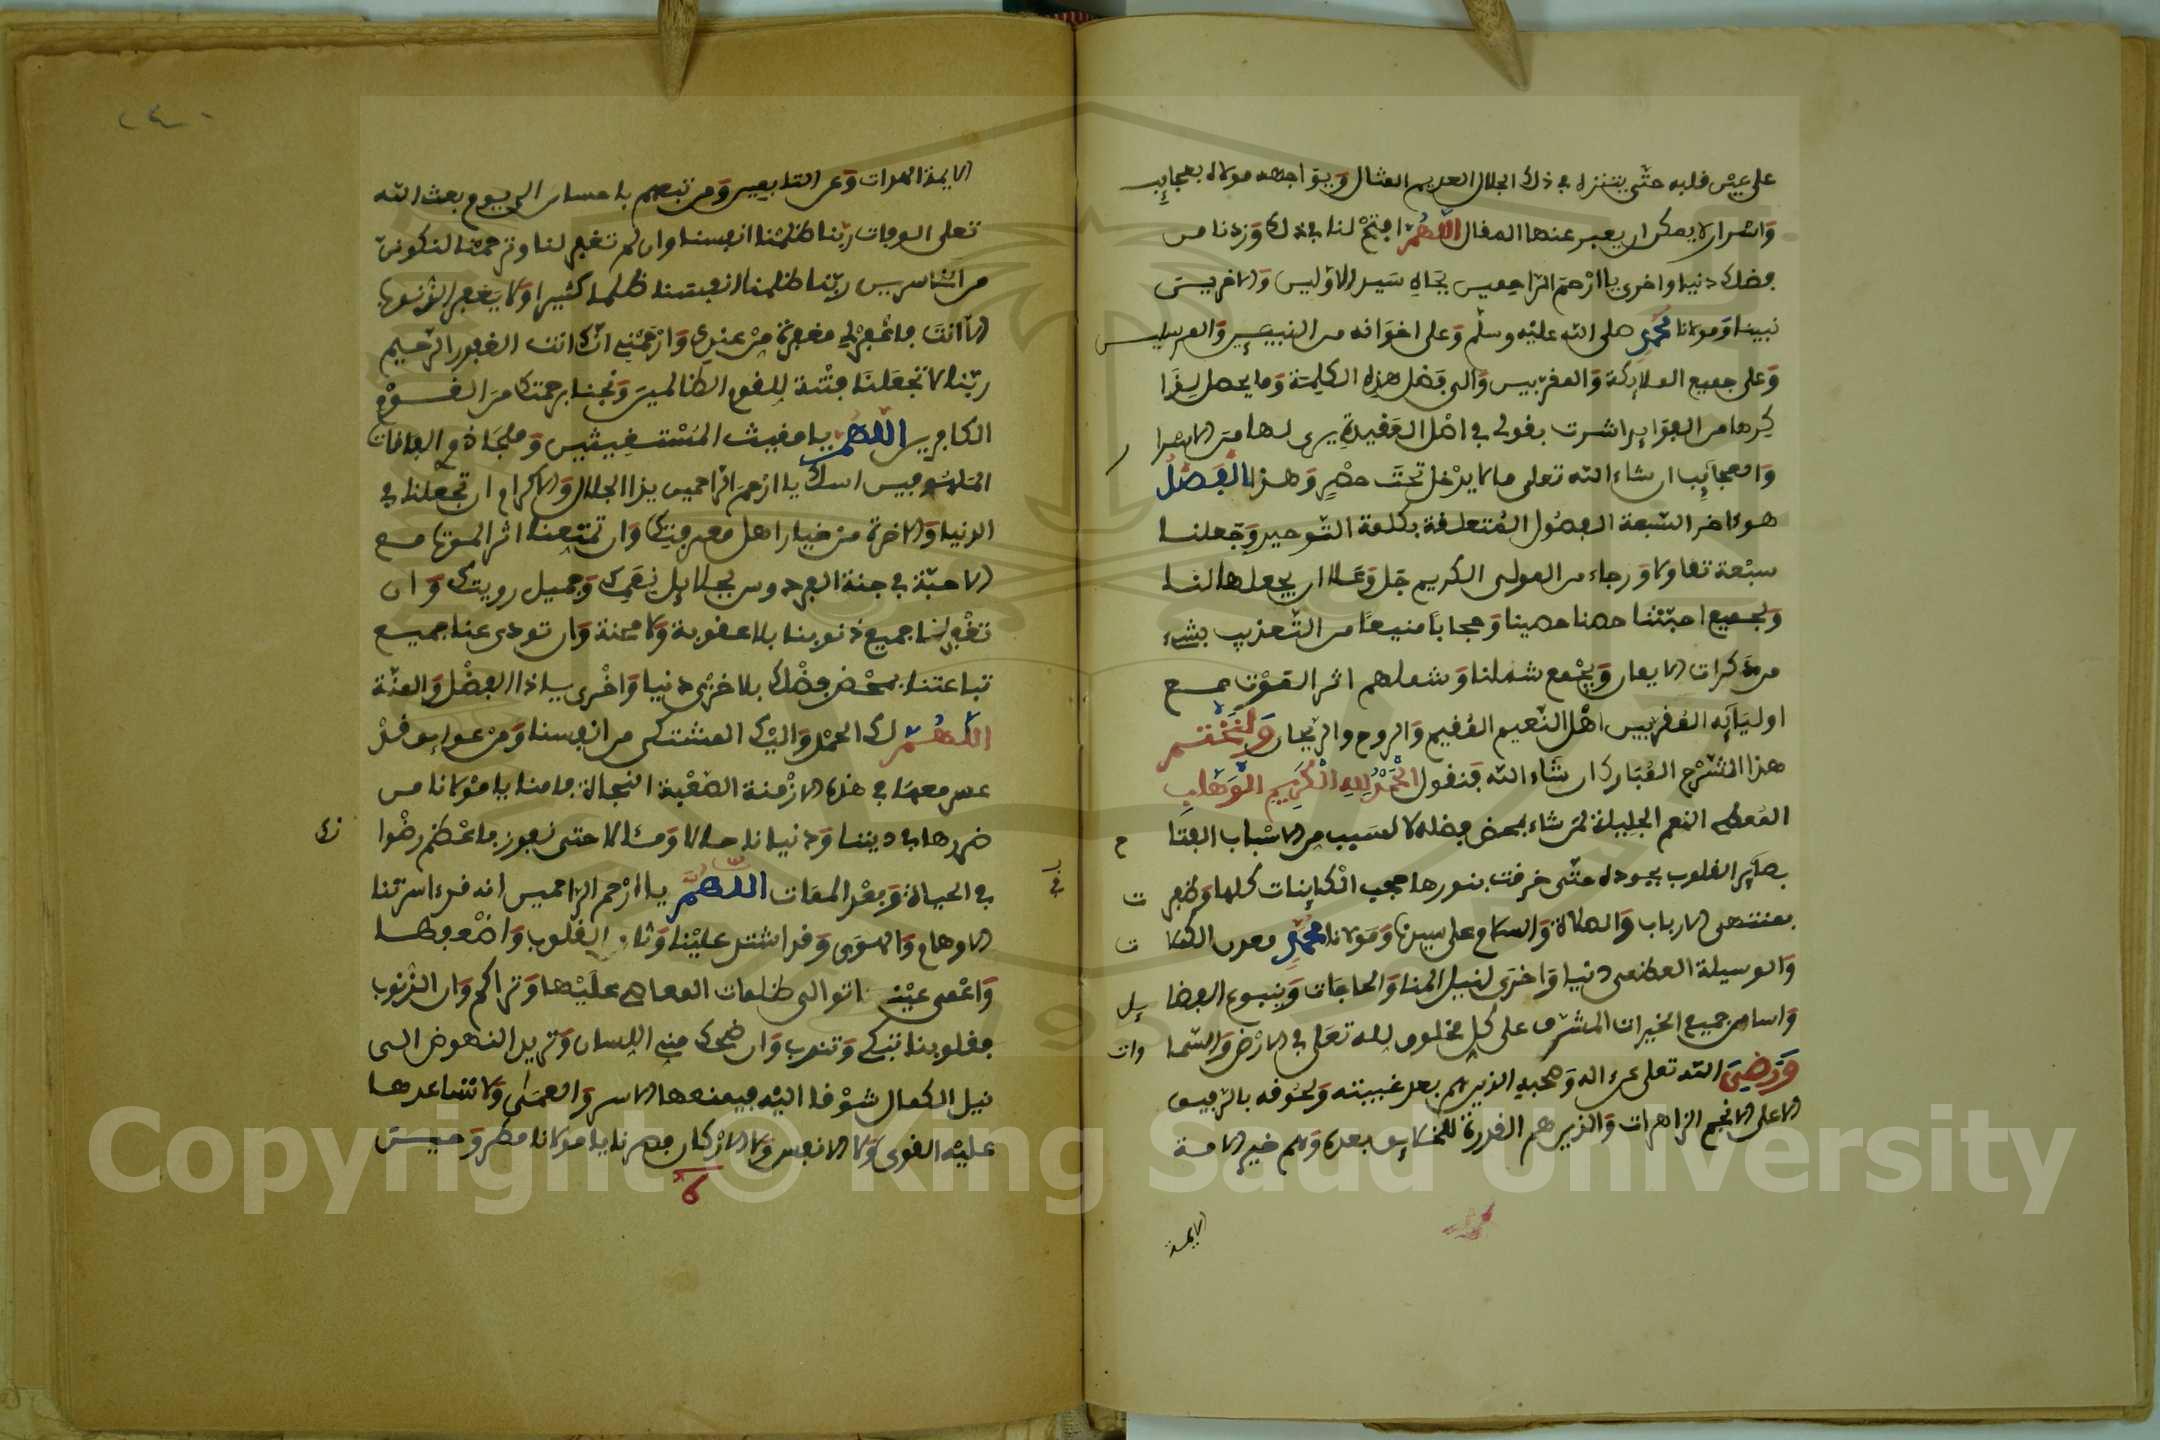 على عين قلبه حتى يتنزه في ذلك الجلال العديم المثال ويواجهه مولاه بعجايب
واسرار لا يمكن ان يعبر عنها المقال اللهم افتح لنا في ذلك وزدنا من
فضلك دنيا واخرى يا ارحم الراحمين بجاه سيد الاولين والاخرين
نبينا ومولانا محمد صلى الله عليه وسلم وعلى اخوانه من النبيين والمرسلين
وعلى جميع الملايكة والمقربين والى فضل هذه الكلمة وما يحصل لذا
كرها من الفوايد اشرت بقولي في اصل العقيدة يرى لها من الاسرا ر
والعجايب ان شاء الله تعلى ما لا يدخل تحت حصر وهذا الفصل
هو ءاخر السبعة الفصول المتعلقة بكلمة التوحيد وجعلنا
سبعة تفاولا ورجاء من المولى الكريم جل وعلا ان يجعلها لنا
ولجميع احبتنا حصنا حصينا وحجابا منيعا من التعذيب بشيء
من دركات النيران ويجمع شملنا وشملهم اثر الموت مع
اوليايه المقربين اهل النعيم المقيم والروح والريحان ولنختم
هذا الشرح المبارك ان شاء الله فنقول الحمد لله الكريم الوهاب
المعطي النعم الجليلة لمن شاء بمحض فضله لا لسبب من الاسباب الفتا ح
بصاير القلوب بجوده حتى خرقت بنورها حجب الكاينات كلها وظفر ت
بمنتهى الارباب والصلاة والسلام على سيدنا ومولانا محمد معدن الكمالا ت
والوسيلة العظمى دنيا واخرى لنيل المنا والحاجات وينبوع الفضا يل
واساس جميع الخيرات المشرف على كل مخلوق لله تعلى في الارض والسما وات
ورضي الله تعلى عن ءاله وصحبه الذين هم بعد غيبته ولحوقه بالرفيق
الاعلى الانجم الزاهرات والذين هم القدوة للخلايق بعده وهم خير الامة
الايمة
الايمة الهداة وعن التابعين ومن تبعهم باحسان الى يوم بعث الله
تعلى الرفات ربنا ظلمنا انفسنا وان لم تغفر لنا وترحمنا لنكونن
من الخاسرين ربنا ظلمنا انفسنا ظلما كثيرا ولا يغفر الذنوب
الا انت فاغفر لي مغفرة من عندك وارحمني انك انت الغفور الرحيم
ربنا لا تجعلنا فتنة للقوم الظالمين ونجنا برحمتك من القوم
الكافرين اللهم يا مغيث المستغيثين وملجأ ذوي الفاقات
الملهوفين اسألك يا ارحم الراحمين يا ذا الجلال والاكرام ان تجعلنا في
الدنيا والاخرة من خيار اهل معرفتك وان تمتعنا اثر الموت مع
الاحبة في جنة الفردوس بجلايل نعمك وجميل رويتك وان
تغفر لنا جميع ذنوبنا بلا عقوبة ولا محنة وان تودي عنا جميع
تباعتنا بمحض فضلك بلا خزي دنيا واخرى يا ذا الفضل والمنة
اللهم لك الحمد واليك المشتكى من انفسنا ومن عوايق قد
عسر معها في هذه الازمنة الصعبة النجاة فامنا يا مولانا من
ضررها في ديننا ودنيانا حالا ومئالا حتى نفوز باعظم رضوا نك
في الحياة وبعد الممات اللهم يا ارحم الراحمين انه قد اسرتنا
الاوهام والهوى وقد اشتد علينا وثاق القلوب واضعفها
واعمى عين توالى ظلمات المعاصي عليها وتراكم وان الذنوب
فقلوبنا تبكي وتندب وان ضحك منه اللسان وتريد النهوض الى
نيل الكمال شوقا اليه فيمنعها الاسر والعمى ولا تساعدها
عليه القوى ولا الانفس ولا الاركان فصرنا يا مولانا